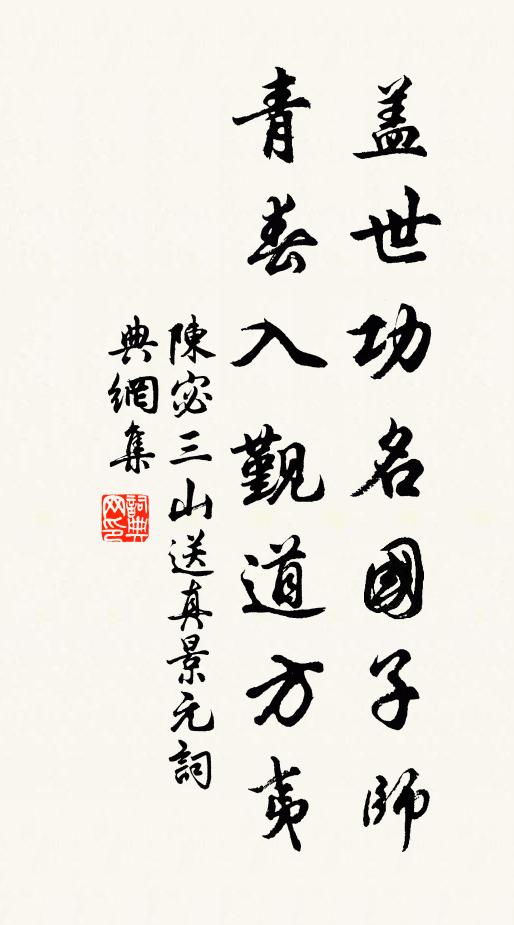 盖世功名國子師
青春入覲道方夷
陳宓三山送真景元詞
典網集
詞典
网印